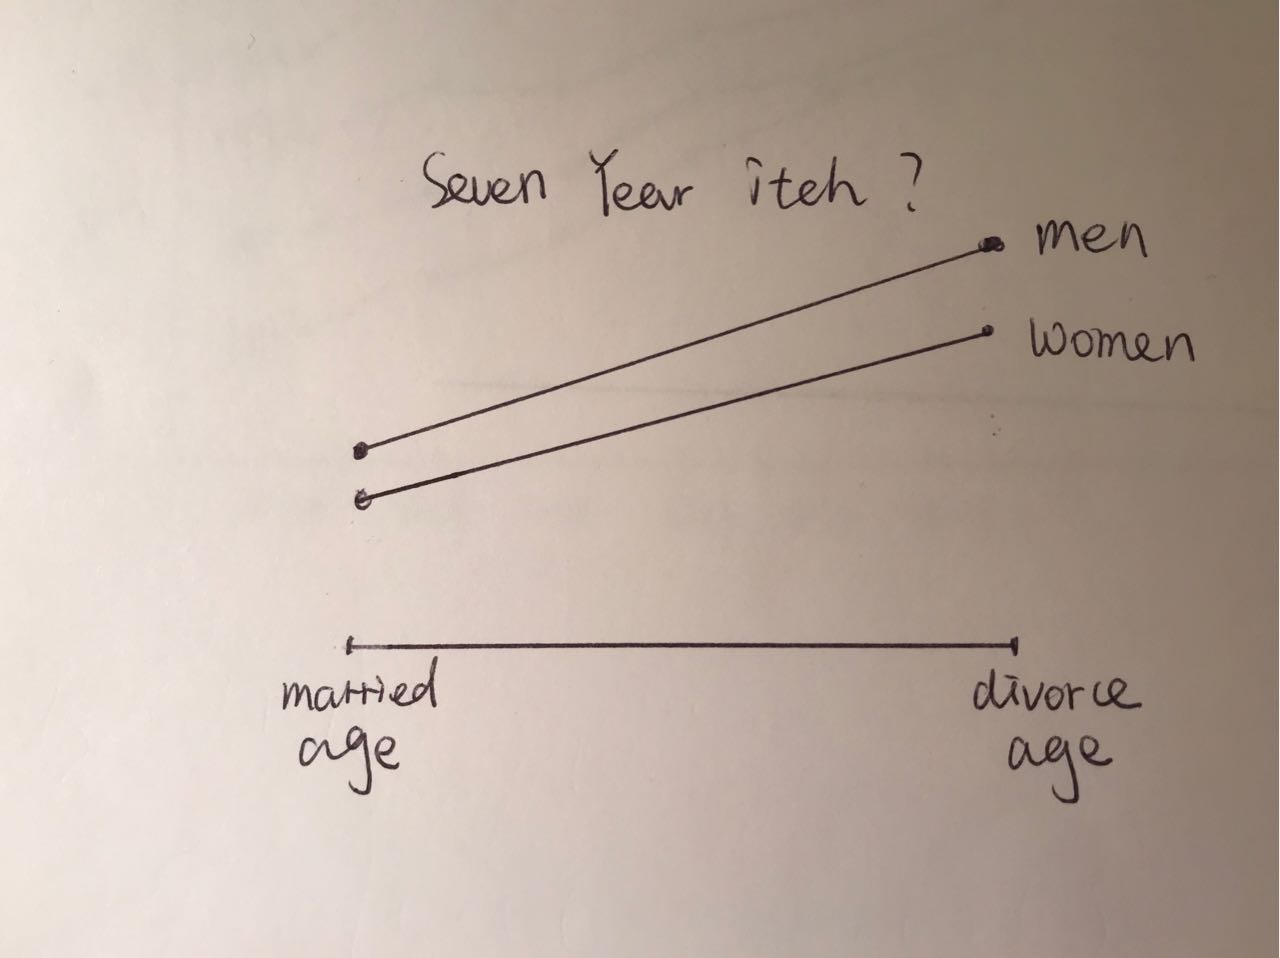 Seven Year itch ?
men
women
married
age
divorce
age